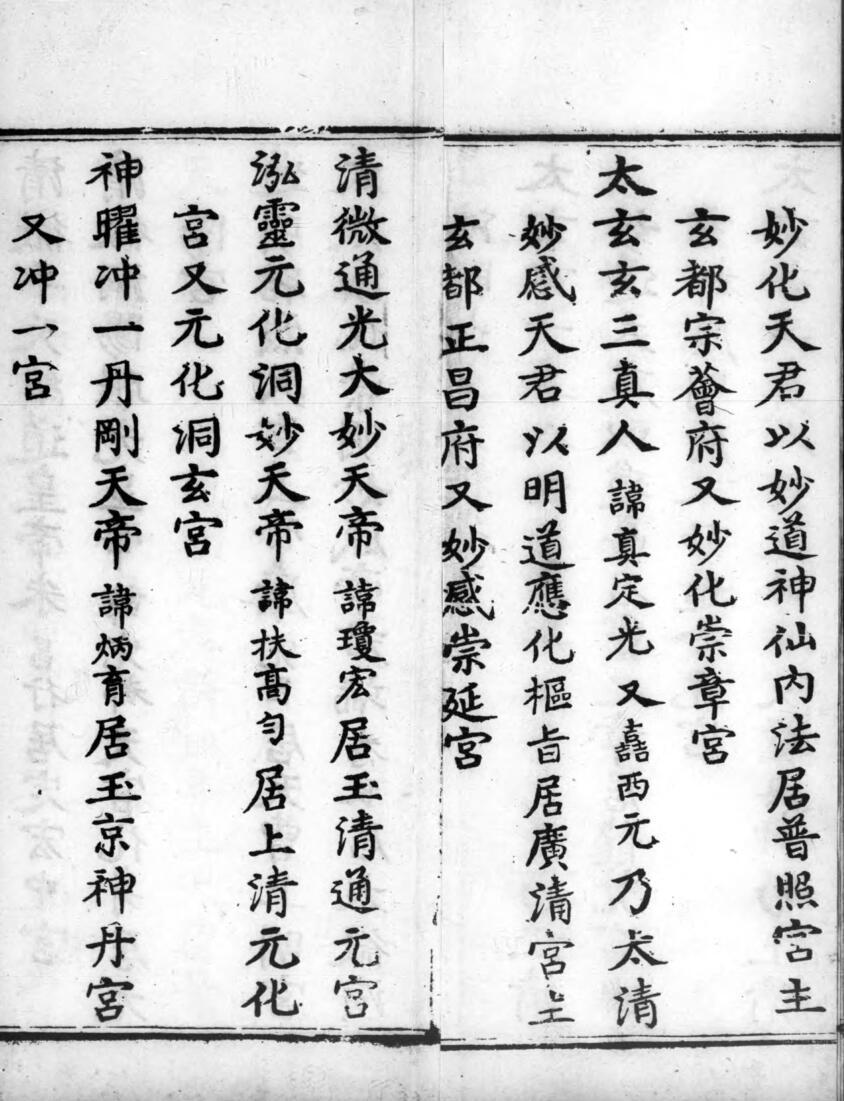 妙化天君以妙道神仙内法居普照宮主
玄都宗薈府又妙化崇章宮
太玄玄三真人諱真定光又嚞西元乃太清
妙感天君以明道應化樞旨居廣清宮主
玄都正昌府又妙感崇延宮
清微通光大妙天帝諱瓊宏居玉清通元宮
泓靈元化洞妙天帝諱扶高匀居上清元化
宮又元化洞玄宮
神曜冲一丹剛天帝諱炳育居玉京神丹宮
又冲一宮